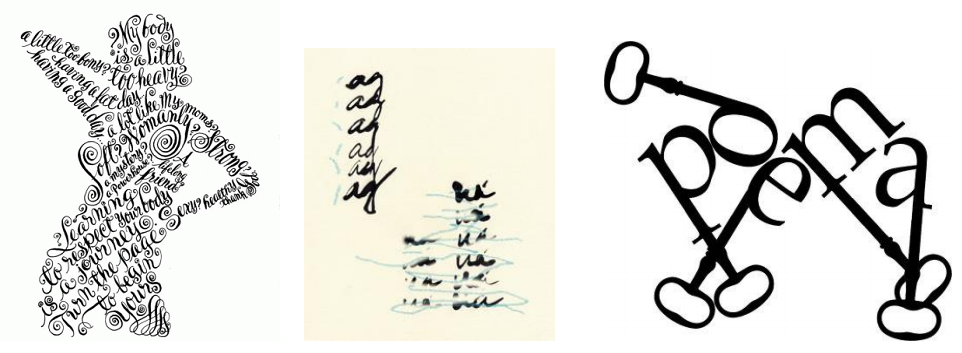 My body
is a little
too heavy?
a little too bony?
having a fat day
having a good day
a lot like my moms?
Soft? Womanly?
Strong?
a mystery?
a Powerhouse?
A
lifelong
friend
Sexy? healthy?
thank
?Learning
to respect your body
is a journey.
Turn the page
to begin
yours
ag
ag
ag
ag
ag
ag
ua
ua
ua
ua
poema